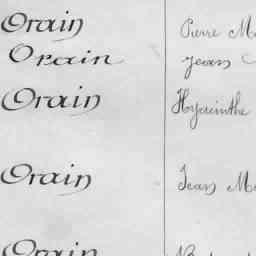 Orain Pierre M
Orain Jean
Orain Hyacinthe
Orain Jean M
Orain